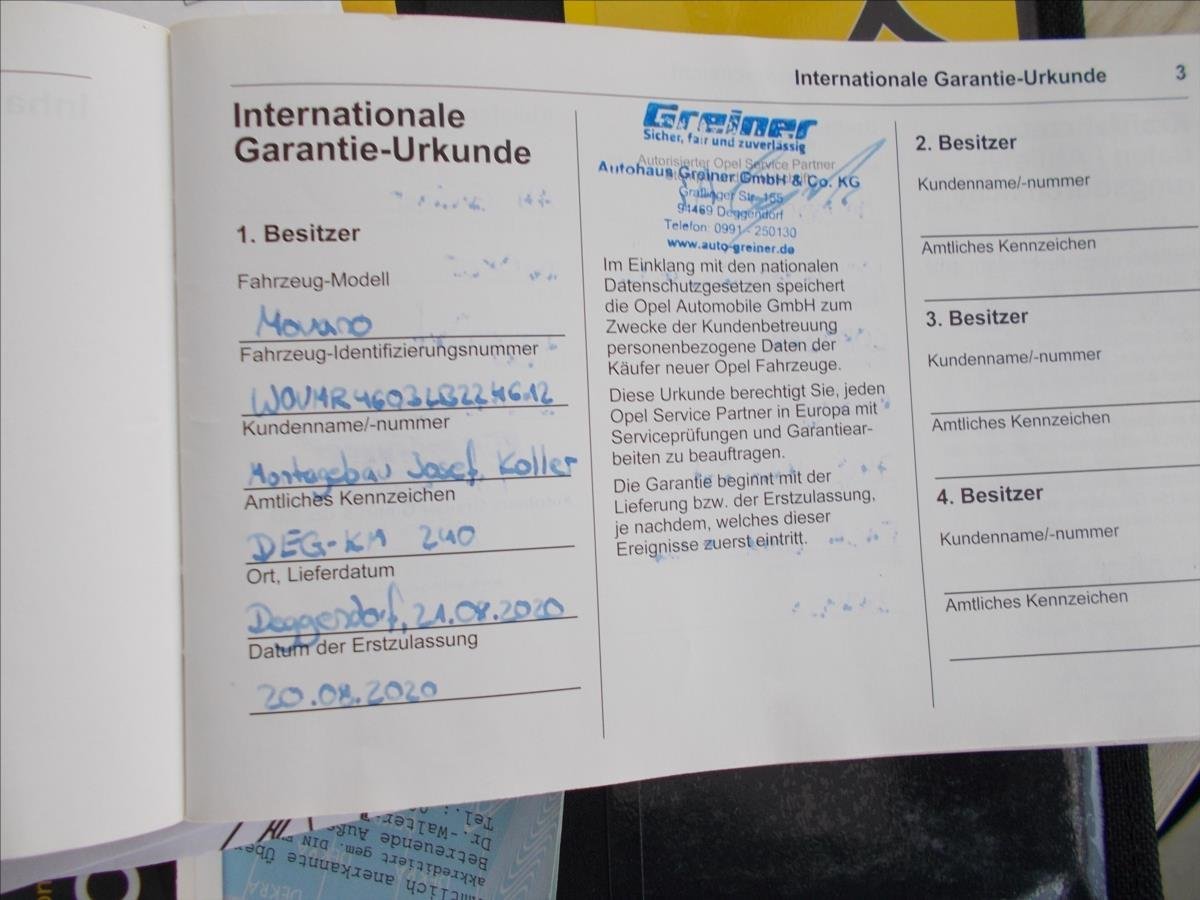 Internationale Garantie-Urkunde 3
Internationale
Garantie-Urkunde
1. Besitzer
Fahrzeug-Modell
Movano
Fahrzeug-Identifizierungsnummer
W0VMR4603LB224612
Kundenname/-nummer
Montagebau Josef Koller
Amtliches Kennzeichen
DEG-KM 240
Ort, Lieferdatum
Deggendorf, 21.08.2020
Datum der Erstzulassung
20.08.2020
Greiner
Sicher, fair und zuverlässig
Autorisierter Opel Service Partner
Autohaus Greiner GmbH & Co. KG
Graflinger Str. 155
94469 Deggendorf
Telefon: 0991 - 250130
www.auto-greiner.de
Im Einklang mit den nationalen
Datenschutzgesetzen speichert
die Opel Automobile GmbH zum
Zwecke der Kundenbetreuung
personenbezogene Daten der
Käufer neuer Opel Fahrzeuge.
Diese Urkunde berechtigt Sie, jeden
Opel Service Partner in Europa mit
Serviceprüfungen und Garantiear-
beiten zu beauftragen.
Die Garantie beginnt mit der
Lieferung bzw. der Erstzulassung,
je nachdem, welches dieser
Ereignisse zuerst eintritt.
2. Besitzer
Kundenname/-nummer
Amtliches Kennzeichen
3. Besitzer
Kundenname/-nummer
Amtliches Kennzeichen
4. Besitzer
Kundenname/-nummer
Amtliches Kennzeichen
Tel
Dr.-Walter-
Betreuende
akkreditiert gem. DIN
anerkannte
DEKRA